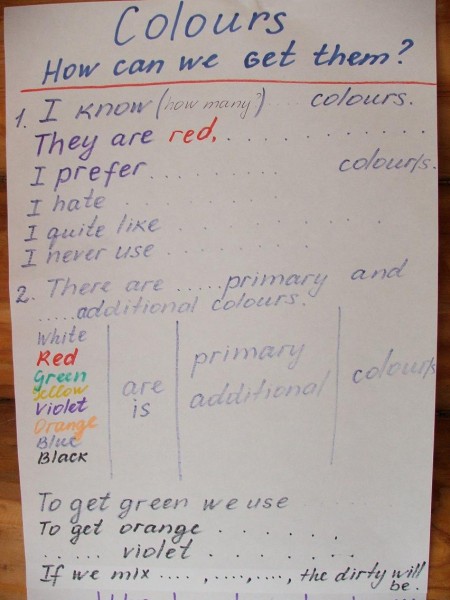 Colours
How can we get them?
1. I know (how many?) ... colours.
They are red, . . . . . . . . . .
I prefer . . . . . . . . . colour/s.
I hate . . . . . . . . .
I quite like . . . . . . . . . .
I never use . . . . . . . .
2. There are ..... primary and
..... additional colours.
White
Red
Green
Yellow
Violet
Orange
Blue
Black
are
is
primary
additional
colour/s
To get green we use
To get orange . . . . . .
. . . . . violet . . . . . . .
If we mix ...., ...., ...., the dirty will
be.